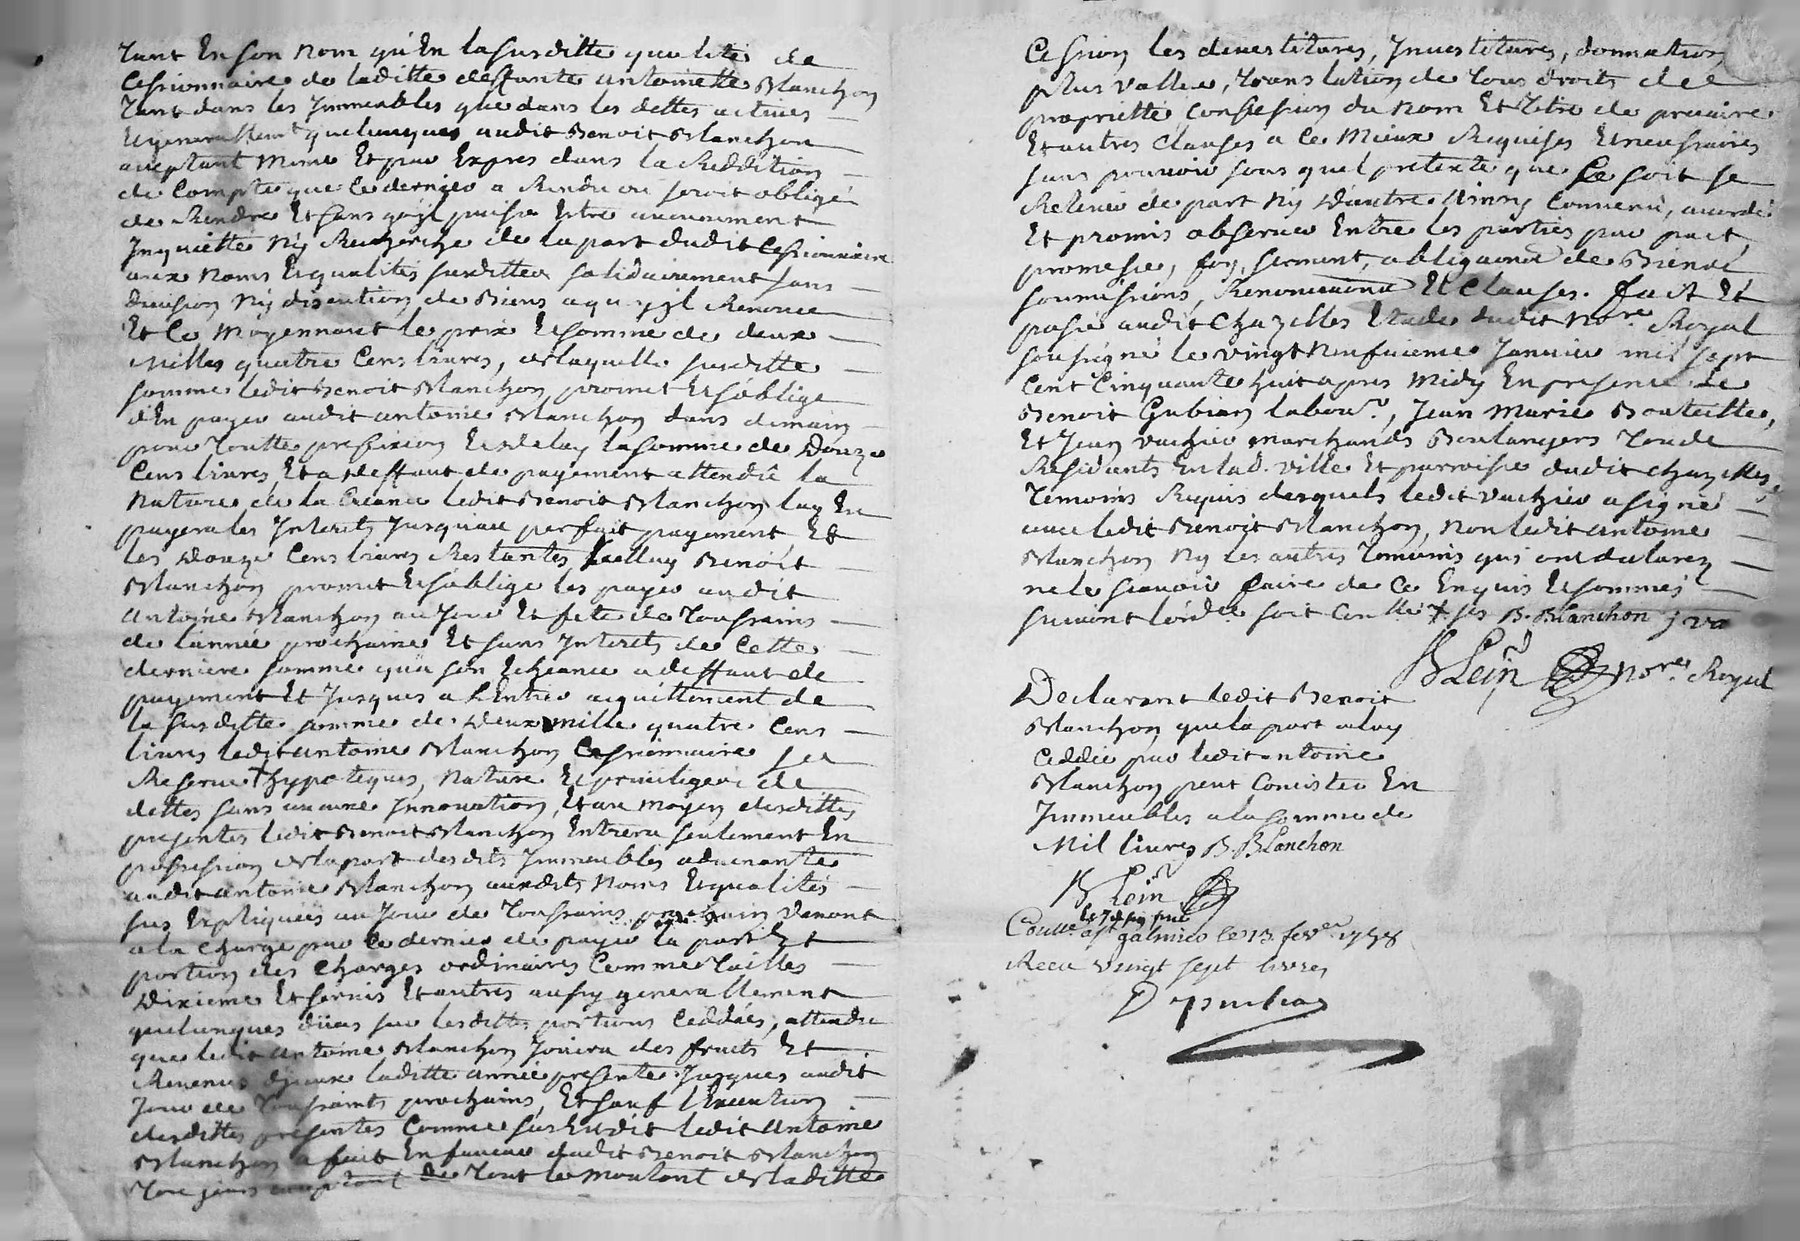 tant En son nom qu'En la susditte qualité de
Cessionnaire de laditte deffunte antoinette Blanchon
tant dans les Immeubles que dans les dettes actives
Et generallemt quelconques audit Benoit Blanchon
aceptant meme Et par Expres dans la Reddition
de Compte que Ce dernier a Rendu ou seroit obligé
de Rendre Et sans qu'jl puisse Estre aucunement
Inquietté Ny Recherché de la part dudit Cessionnaire
aux noms Et qualités susdittes solidairement sans
division Ny discution de Biens a quoy jl Renonce
Et Ce moyennant le prix Et somme de deux
Milles quatre Cens livres, de laquelle susditte
somme ledit Benoit Blanchon promet Et s'oblige
d'En payer audit antoine Blanchon dans demain
pour toutte prefixion Et delay la somme de Douze
Cens livres, Et a deffaut de payement attendû la
Nature de la Créance ledit Benoit Blanchon luy En
payera les Interets jusquau parfait payement, Et
les Douze Cens livres Restantes, Icelluy Benoit
Blanchon promet Et s'oblige les payer audit
Antoine Blanchon au Jour Et fete de Toussains
de l'année prochaine Et sans Interets de Cette
derniere somme qu'a son Echeance a deffaut de
payement Et Jusques a L'Entier acquittement de
la susditte somme de Deux mille quatre Cens
livres ledit antoine Blanchon Cessionnaire se
Reserve thypoteques, Nature Et privileges de
dettes sans aucune Innovation, Et au moyen desdittes
presentes ledit Benoit Blanchon Entrera seulement En
possession de la part desdits Immeubles advenante
audit antoine Blanchon auxdits Noms Et qualités
sus Expliquées au Jour de Toussains prochain venant
a la Charge par Ce dernier de payer la part Et
portion des Charges ordinaires Comme Tailles
Dixieme Et servis Et autres aussy generallement
quelconques düas sur lesdittes portions Ceddées, attendu
que ledit antoine Blanchon Jouira des fruits Et
Revenus d'jceux laditte année presente Jusques audit
Jour de Toussaints prochains, Et sauf l'Execution
desdittes presentes Comme sus Endit ledit Antoine
Blanchon a fait En faveur dudit Benoit Blanchon
Toujours aceptant de Tout le montant de laditte
Cession les devestitures, Investitures, donnation
plus vallue, translation de Tous droits de
proprietté, Confession du nom Et Titre de precaire
Et autres Clauses a Ce Mieux Requises Et necessaires
sans pouvoir sous quel pretexte que Ce soit se
Relever de part Ny d'autre Ainsy Convenu, accordé
Et promis observer Entre les parties par pact,
promesse, foy, serment, obligaon de Biens
soumissions, Renonciaon Et Clauses. fait Et
passé audit Chazelles Etude dudit Nore. Royal
soussigné le vingt neufuieme Janvier mil sept
Cent Cinquante huit apres Midy En presence de
Benoit Gubian labour., Jean Marie Bouteille,
Et Jean vachier marchands Boulangers Tous de
Residents En lad. ville Et parroisse dudit Chazelles
Temoins Requis desquels ledit vachier a signé
avec ledit Benoit Blanchon, Non ledit antoine
Blanchon Ny les autres temoins qui ont declarez
ne le scavoir faire de Ce Enquis Et sommés
suivant l'ord. soit Conllé + ses B. Blanchon j va
BLein Nore. Royal
Declarant ledit Benoit
Blanchon que la part a luy
Ceddée par ledit antoine
Blanchon peut Concister En
Immeubles a la somme de
Mil livres B. Blanchon
BLein
Conllé a st galmier le 13. fevr. 1758
Receu vingt sept livres